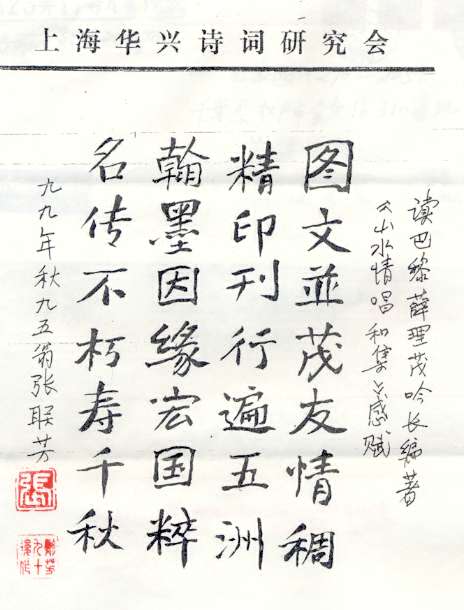 上海华兴诗词研究会
读巴黎薛理茂吟长编著
《山水情唱和集》感赋
图文並茂友情稠
精印刊行遍五洲
翰墨因缘宏国粹
名传不朽寿千秋
九九年秋九五翁张联芳
張